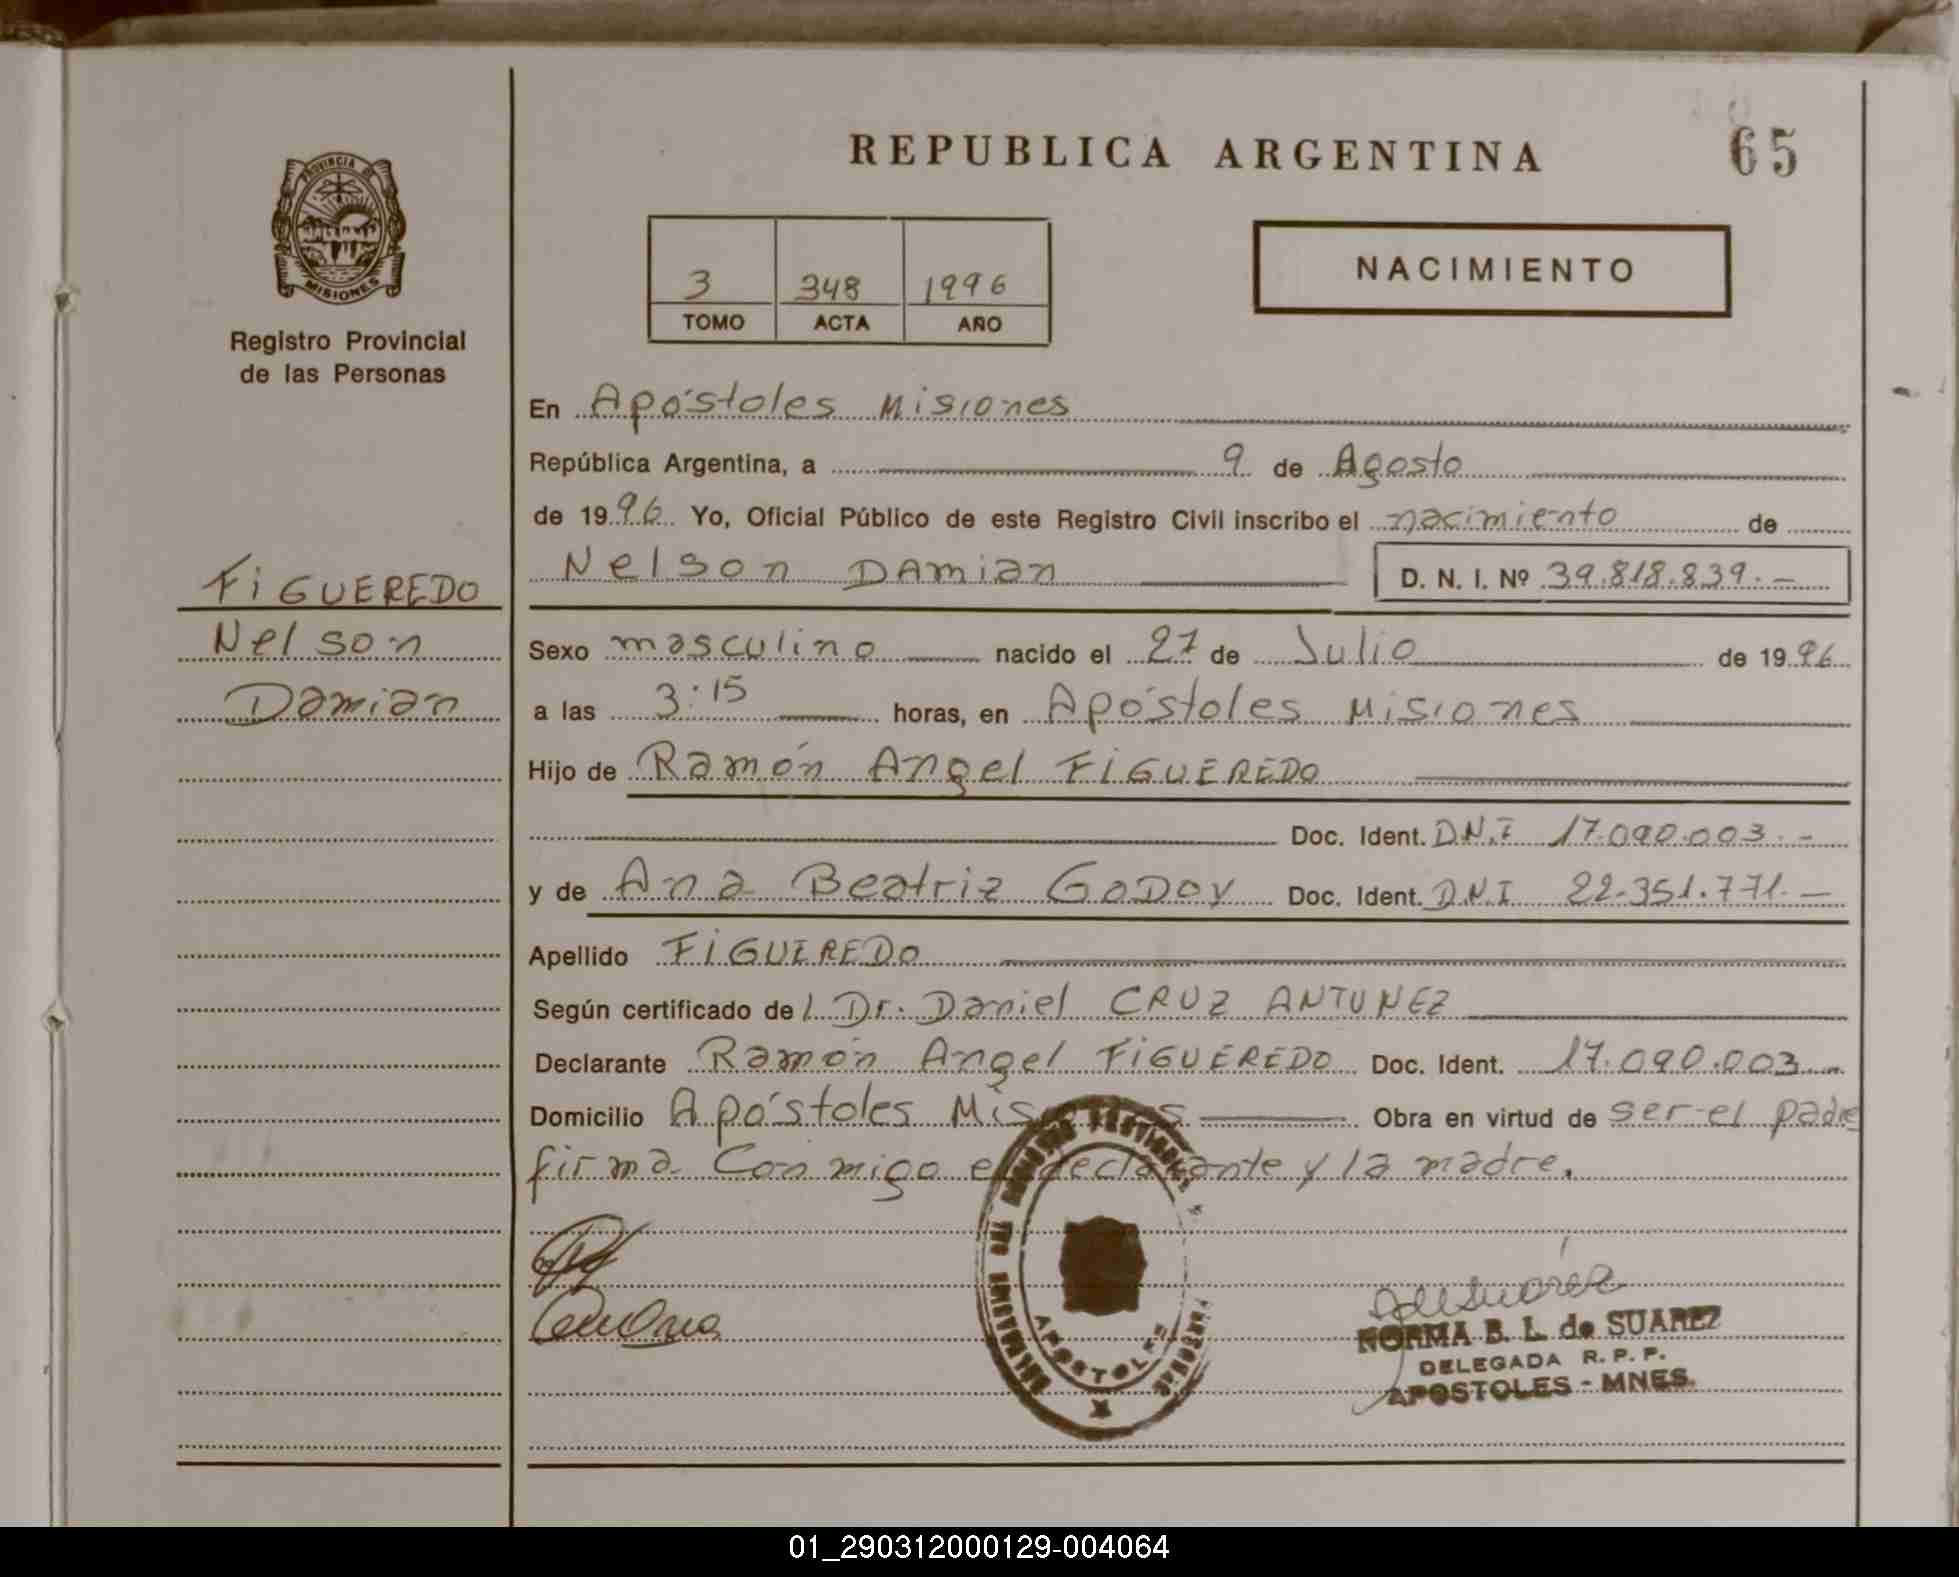 REPUBLICA ARGENTINA
65
PROVINCIA DE
MISIONES
Registro Provincial
de las Personas
3 348 1996
TOMO ACTA AÑO
NACIMIENTO
En Apóstoles Misiones
República Argentina, a 9 de Agosto
de 1996 Yo, Oficial Público de este Registro Civil inscribo el nacimiento de
Nelson DAmian D. N. I. Nº 39.818.839.-
FiGUEREDO
Nelson
Damian
Sexo masculino nacido el 27 de Julio de 1996
a las 3:15 horas, en Apóstoles Misiones
Hijo de Ramón Angel FiGUEREDO
Doc. Ident. D.N.I 17.090.003.-
y de Ana Beatriz GoDoy Doc. Ident. D.N.I 22.351.771.-
Apellido FiGUEREDO
Según certificado del Dr. Daniel CRUZ ANTUNEZ
Declarante Ramón Angel FiGUEREDO Doc. Ident. 17.090.003
Domicilio Apóstoles Misiones Obra en virtud de ser el padre
firma conmigo el declarante y la madre.
APOSTOLES
NORMA B. L. de SUAREZ
DELEGADA R. P. P.
APOSTOLES - MNES.
01_290312000129-004064